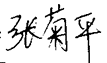 张菊平